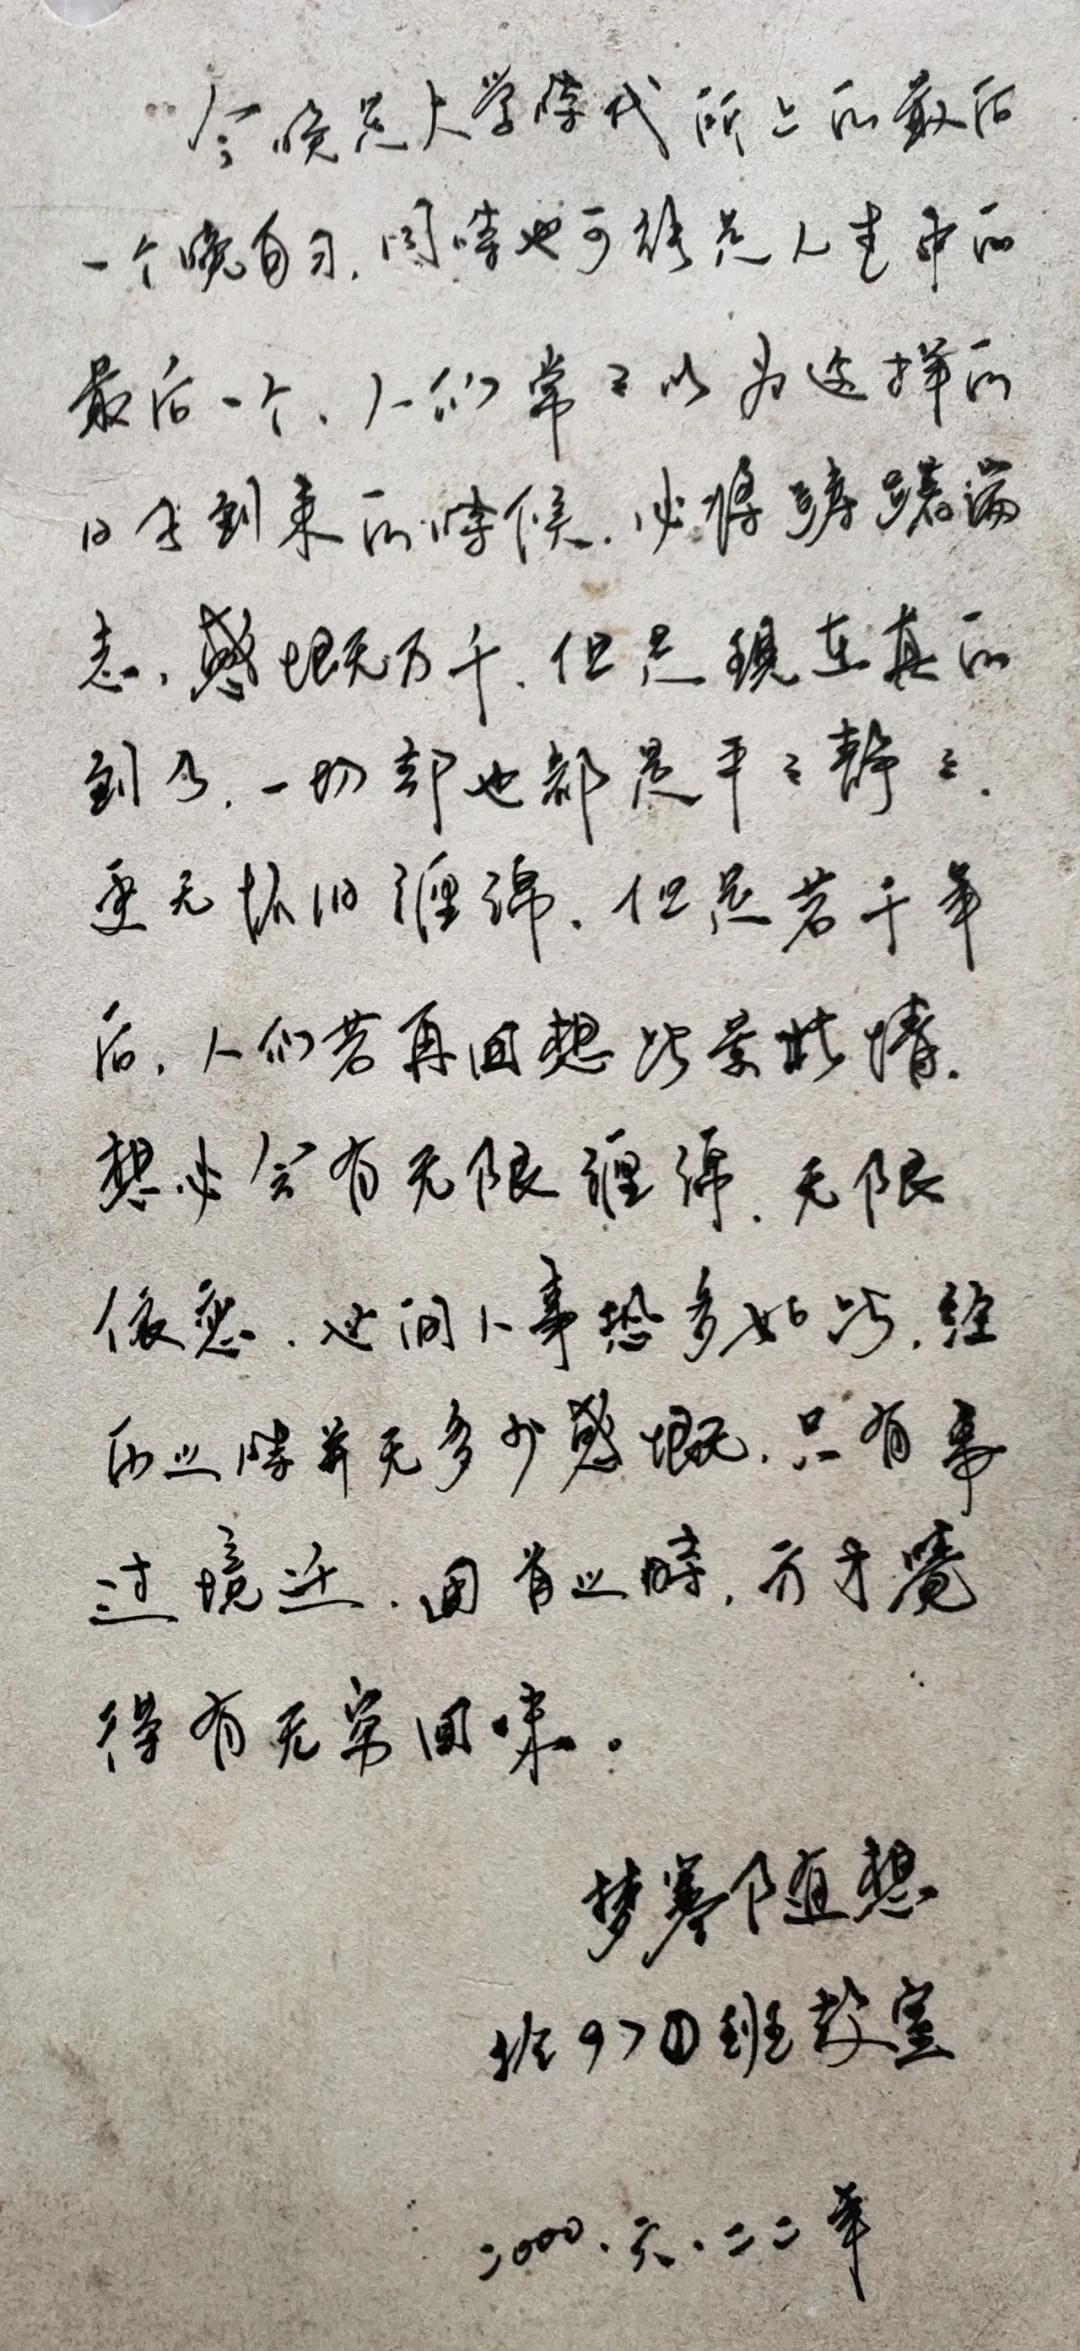 今晚是大学时代所上的最后
一个晚自习，同时也可能是人生中的
最后一个、人们常々以为这样的
日子到来的时候，必将踌躇满
志，感慨万千，但是现在真的
到了，一切却也都是平々静々，
更无怀旧缠绵，但是若干年
后，人们若再回想此景此情，
想必会有无限缠绵，无限
依恋，世间人事恐多如此，经
历之时并无多少感慨，只有事
过境迁，回首之时，方才觉
得有无穷回味。
梦寒随想
於97①班教室
二000.六.二二年